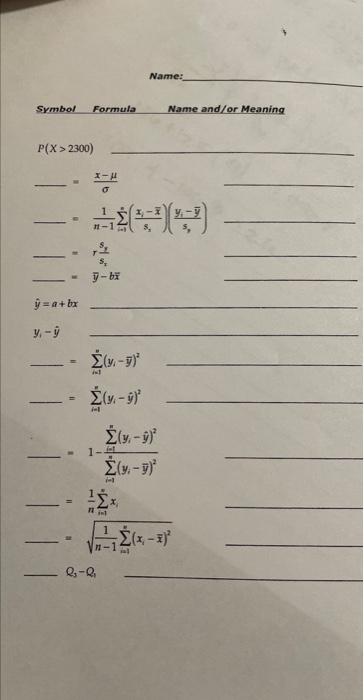 Name:
Symbol Formula Name and/or Meaning
P(X > 2300)
= x − μ / σ
= 1/(n−1) ∑ⁿᵢ₌₁ ((xᵢ − x̄)/sₓ)((yᵢ − ȳ)/s_y)
= r s_y/sₓ
= ȳ − bx̄
ŷ = a + bx
yᵢ − ŷ
= ∑ⁿᵢ₌₁ (yᵢ − ȳ)²
= ∑ⁿᵢ₌₁ (yᵢ − ŷ)²
= 1 − ∑ⁿᵢ₌₁ (yᵢ − ŷ)² / ∑ⁿᵢ₌₁ (yᵢ − ȳ)²
= 1/n ∑ⁿᵢ₌₁ xᵢ
= √(1/(n−1) ∑ⁿᵢ₌₁ (xᵢ − x̄)²)
Q₃ − Q₁